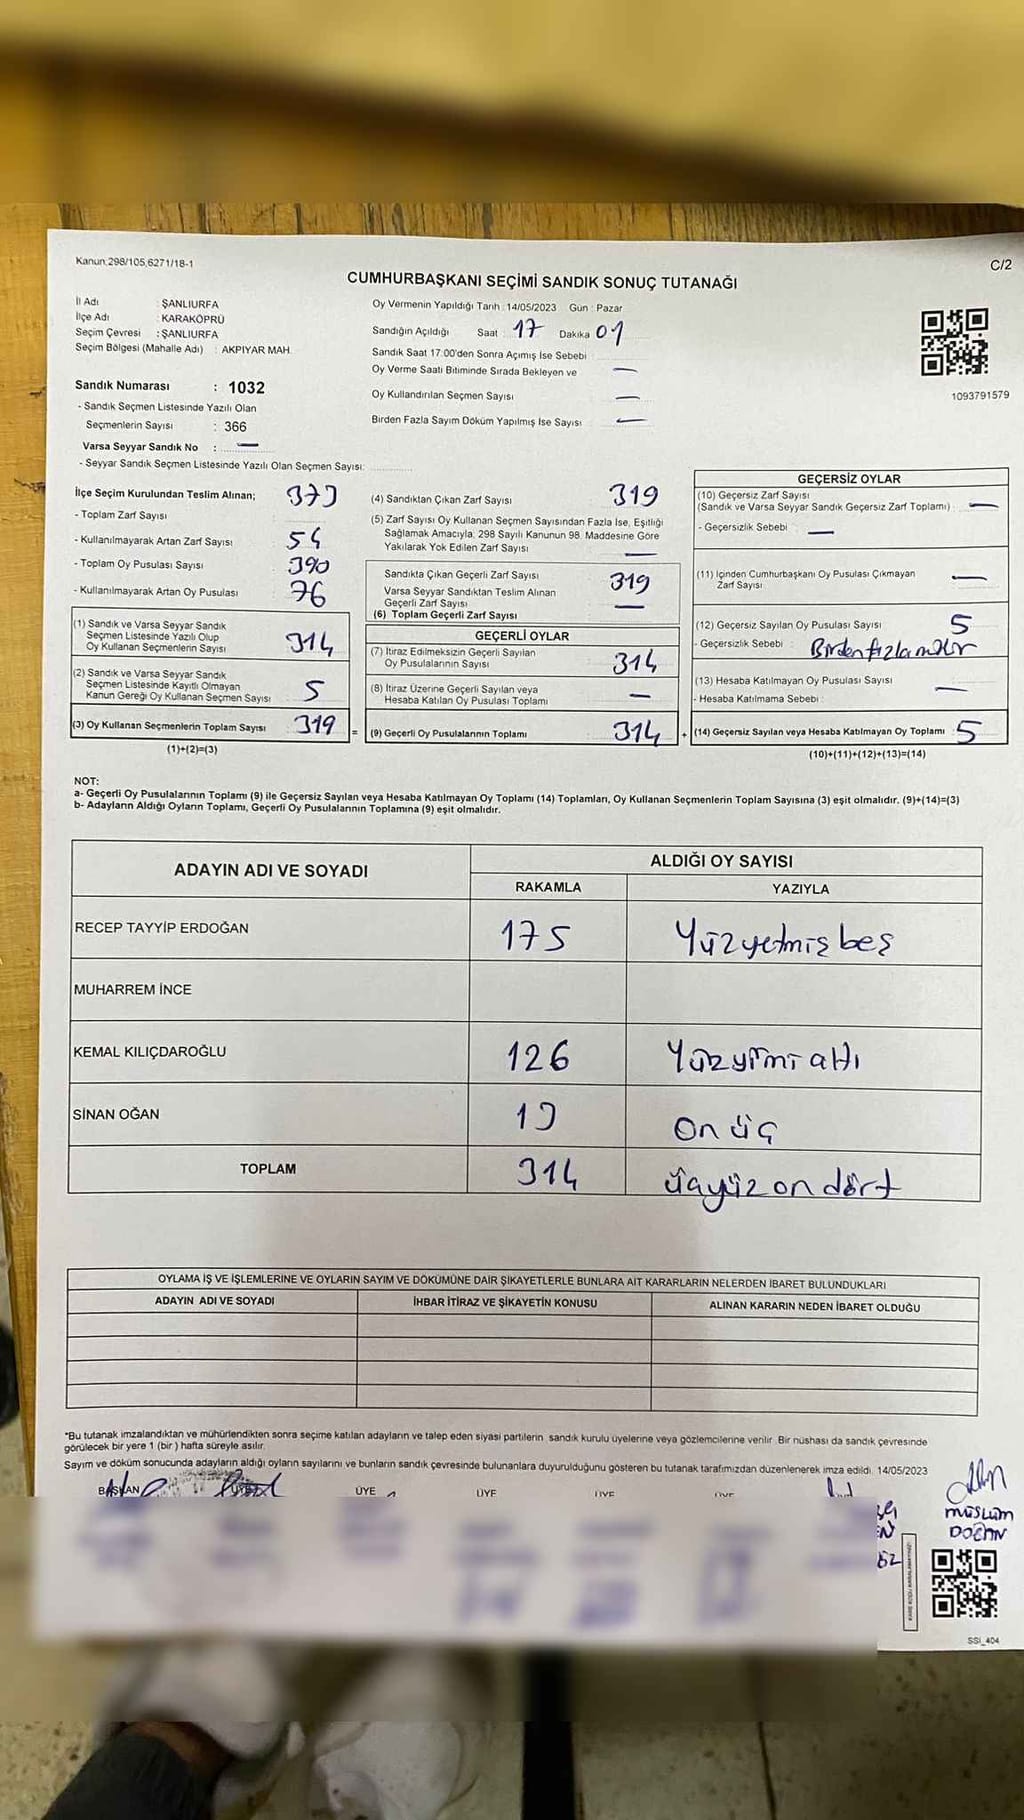 Kanun:298/105,6271/18-1
C/2
CUMHURBAŞKANI SEÇİMİ SANDIK SONUÇ TUTANAĞI
İl Adı : ŞANLIURFA
İlçe Adı : KARAKÖPRÜ
Seçim Çevresi : ŞANLIURFA
Seçim Bölgesi (Mahalle Adı) : AKPIYAR MAH.
Sandık Numarası : 1032
- Sandık Seçmen Listesinde Yazılı Olan
Seçmenlerin Sayısı : 366
Varsa Seyyar Sandık No : —
- Seyyar Sandık Seçmen Listesinde Yazılı Olan Seçmen Sayısı:
Oy Vermenin Yapıldığı Tarih : 14/05/2023 Gün : Pazar
Sandığın Açıldığı Saat : 17 Dakika 01
Sandık Saat 17:00'den Sonra Açımış İse Sebebi
Oy Verme Saati Bitiminde Sırada Bekleyen ve —
Oy Kullandırılan Seçmen Sayısı —
Birden Fazla Sayım Döküm Yapılmış İse Sayısı —
1093791579
İlçe Seçim Kurulundan Teslim Alınan;
- Toplam Zarf Sayısı 373
- Kullanılmayarak Artan Zarf Sayısı 54
- Toplam Oy Pusulası Sayısı 390
- Kullanılmayarak Artan Oy Pusulası 76
(1) Sandık ve Varsa Seyyar Sandık
Seçmen Listesinde Yazılı Olup
Oy Kullanan Seçmenlerin Sayısı 314
(2) Sandık ve Varsa Seyyar Sandık
Seçmen Listesinde Kayıtlı Olmayan
Kanun Gereği Oy Kullanan Seçmen Sayısı 5
(3) Oy Kullanan Seçmenlerin Toplam Sayısı 319
(1)+(2)=(3)
(4) Sandıktan Çıkan Zarf Sayısı 319
(5) Zarf Sayısı Oy Kullanan Seçmen Sayısından Fazla İse, Eşitliği
Sağlamak Amacıyla, 298 Sayılı Kanunun 98. Maddesine Göre
Yakılarak Yok Edilen Zarf Sayısı —
Sandıkta Çıkan Geçerli Zarf Sayısı 319
Varsa Seyyar Sandıktan Teslim Alınan
Geçerli Zarf Sayısı —
(6) Toplam Geçerli Zarf Sayısı
GEÇERLİ OYLAR
(7) İtiraz Edilmeksizin Geçerli Sayılan
Oy Pusulalarının Sayısı 314
(8) İtiraz Üzerine Geçerli Sayılan veya
Hesaba Katılan Oy Pusulası Toplamı —
= (9) Geçerli Oy Pusulalarının Toplamı 314
GEÇERSİZ OYLAR
(10) Geçersiz Zarf Sayısı
(Sandık ve Varsa Seyyar Sandık Geçersiz Zarf Toplamı) : —
- Geçersizlik Sebebi : —
(11) İçinden Cumhurbaşkanı Oy Pusulası Çıkmayan
Zarf Sayısı —
(12) Geçersiz Sayılan Oy Pusulası Sayısı : 5
- Geçersizlik Sebebi : Birden fazla mühür
(13) Hesaba Katılmayan Oy Pusulası Sayısı : —
- Hesaba Katılmama Sebebi :
+ (14) Geçersiz Sayılan veya Hesaba Katılmayan Oy Toplamı : 5
(10)+(11)+(12)+(13)=(14)
NOT:
a- Geçerli Oy Pusulalarının Toplamı (9) ile Geçersiz Sayılan veya Hesaba Katılmayan Oy Toplamı (14) Toplamları, Oy Kullanan Seçmenlerin Toplam Sayısına (3) eşit olmalıdır. (9)+(14)=(3)
b- Adayların Aldığı Oyların Toplamı, Geçerli Oy Pusulalarının Toplamına (9) eşit olmalıdır.
ADAYIN ADI VE SOYADI ALDIĞI OY SAYISI
RAKAMLA YAZIYLA
RECEP TAYYİP ERDOĞAN 175 Yüzyetmiş beş
MUHARREM İNCE
KEMAL KILIÇDAROĞLU 126 Yüzyirmi altı
SİNAN OĞAN 13 on üç
TOPLAM 314 üçyüz on dört
OYLAMA İŞ VE İŞLEMLERİNE VE OYLARIN SAYIM VE DÖKÜMÜNE DAİR ŞİKAYETLERLE BUNLARA AİT KARARLARIN NELERDEN İBARET BULUNDUKLARI
ADAYIN ADI VE SOYADI İHBAR İTİRAZ VE ŞİKAYETİN KONUSU ALINAN KARARIN NEDEN İBARET OLDUĞU
*Bu tutanak imzalandıktan ve mühürlendikten sonra seçime katılan adayların ve talep eden siyasi partilerin sandık kurulu üyelerine veya gözlemcilerine verilir. Bir nüshası da sandık çevresinde
görülecek bir yere 1 (bir) hafta süreyle asılır.
Sayım ve döküm sonucunda adayların aldığı oyların sayılarını ve bunların sandık çevresinde bulunanlara duyurulduğunu gösteren bu tutanak tarafımızdan düzenlenerek imza edildi. 14/05/2023
BAŞKAN ÜYE ÜYE ÜYE ÜYE ÜYE
MÜSLÜM
DOĞAN
SSI_404